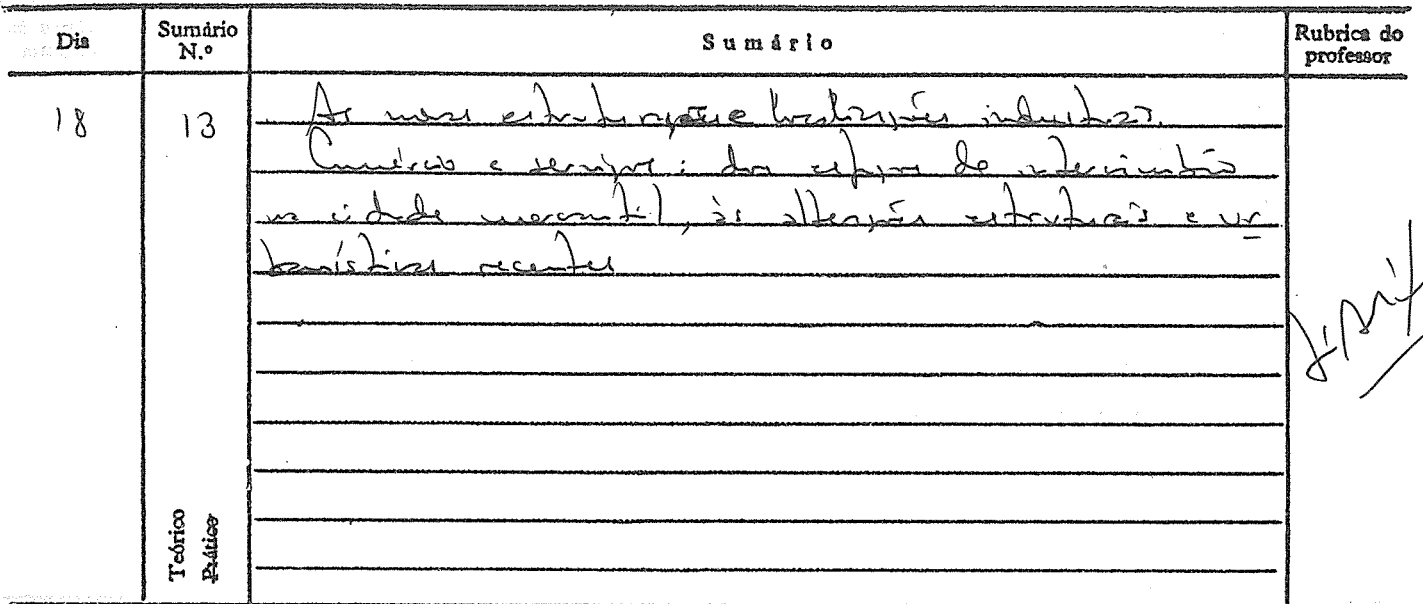 Dia
Sumário N.º
Sumário
Rubrica do professor
18
13
As novas estruturações e localizações industriais.
Comércio e serviços: dos espaços de
na cidade mercantil, às alterações estruturais e ur
banísticas recentes
Teórico
Prático